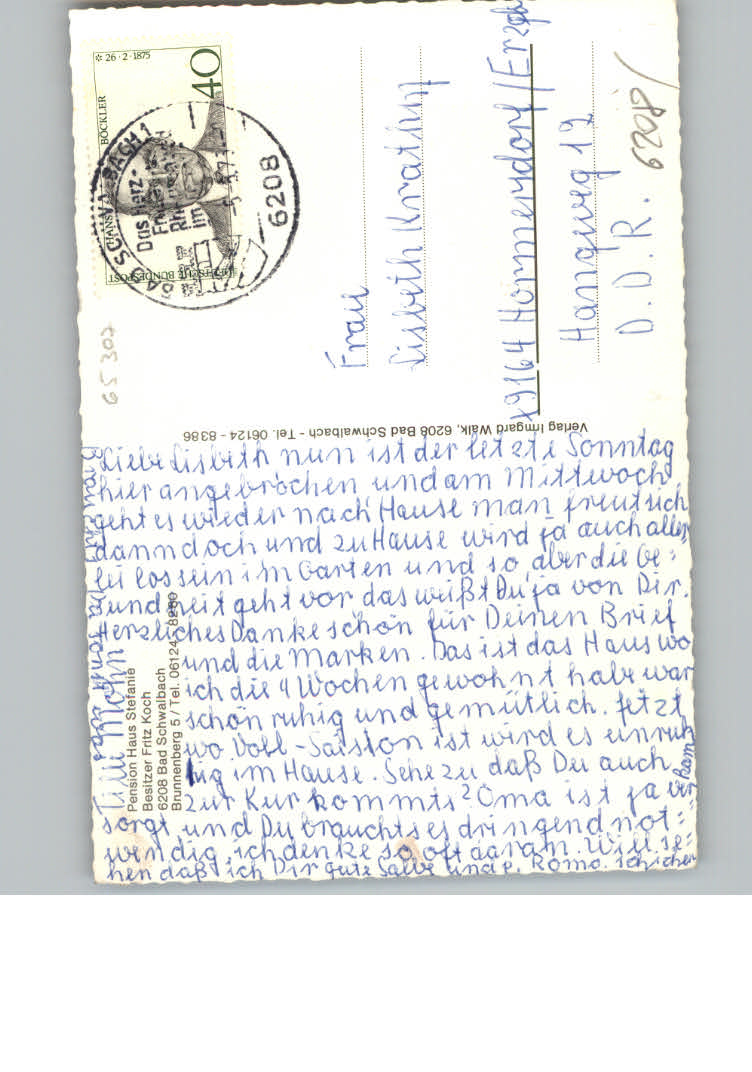 Liebe Lisbeth nun ist der letzte Sonntag
hier angebrochen und am Mittwoch
geht es wieder nach Hause man freut sich
dann doch und zu Hause wird ja auch aller
lei los sein im Garten und so, aber die Ge=
sundheit geht vor das weißt Du ja von Dir.
Herzliches Dankeschön für Deinen Brief
und die Marken. Das ist das Haus wo
ich die 4 Wochen gewohnt habe war
schön ruhig und gemütlich. Jetzt
wo Voll-Saison ist wird es unruh
ig im Hause. Sehe zu daß Du auch
zur Kur kommts? Oma ist ja ver
sorgt und Du brauchts es dringend not=
wendig, ich denke so oft daran. Will se=
hen daß ich Dir gute Salbe und
Tilli Mohn
Pension Haus Stefanie
Besitzer Fritz Koch
6208 Bad Schwalbach
Brunnenberg 5 / Tel. 06124 - 8280
Verlag Irmgard Walk, 6208 Bad Schwalbach - Tel. 06124 - 8386
* 26·2·1875
HANS BÖCKLER
40
DEUTSCHE BUNDESPOST
SCHWALBACH 1
Das Herz-
im
6208
65 302
Frau
Lisbeth Krathy
x9164 Hormersdorf/Erzgeb
Hangweg 12
D.D.R.
6208/